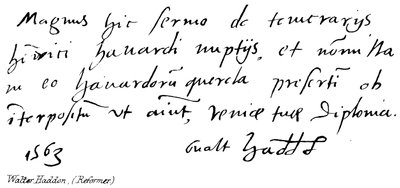 Magnus hic sermo de temerarijs
hērici havardi nuptijs, et nōnulla
in eo havardorū querela presertī ob
īterpositū ut aiūt, veniæ tuæ diploma.
1563 Gualt Haddō
Walter Haddon, (Reformer.)